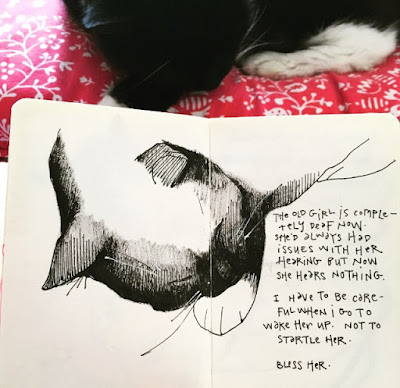 THE OLD GIRL IS COMPLE-
TELY DEAF NOW.
SHE'D ALWAYS HAD
ISSUES WITH HER
HEARING BUT NOW
SHE HEARS NOTHING.
I HAVE TO BE CARE-
FUL WHEN i GO TO
WAKE HER UP. NOT TO
STARTLE HER.
BLESS HER.